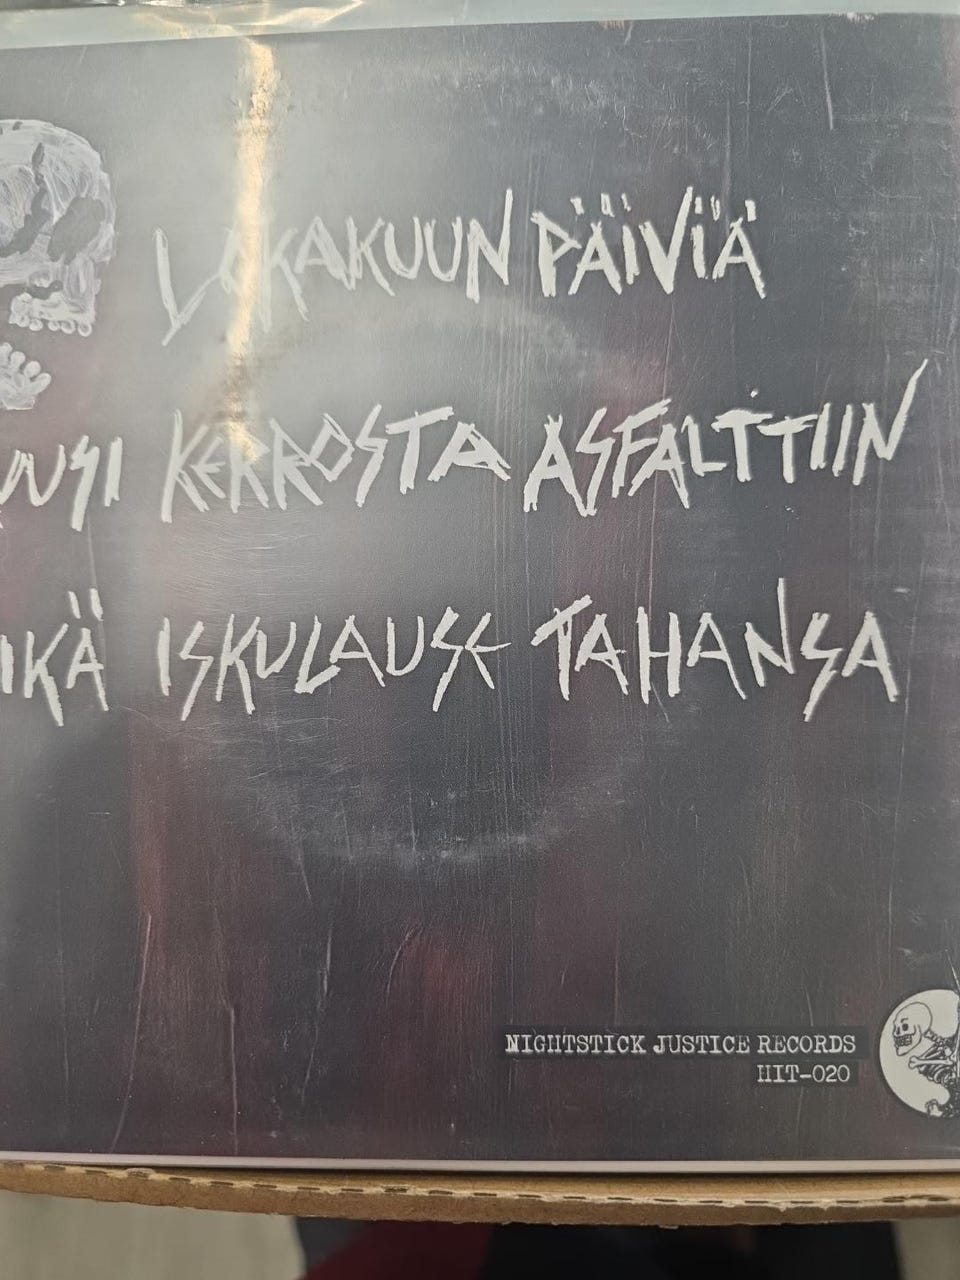 LOKAKUUN PÄIVIÄ
KERROSTA ASFALTTIIN
ISKULAUSE TAHANSA
NIGHTSTICK JUSTICE RECORDS
HIT-020